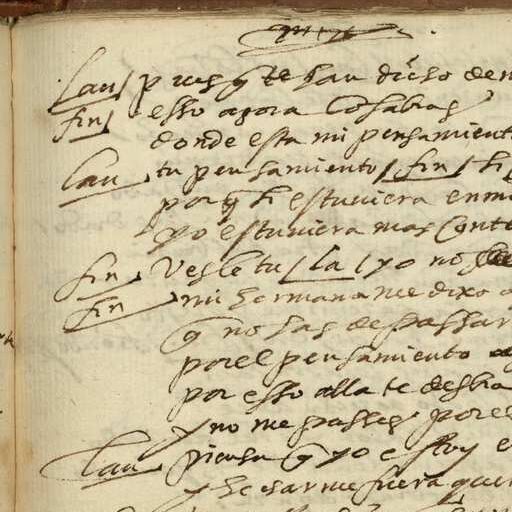 Lau/ pues q̄ te han dicho de m
fin/ esso agora lo sabras
donde esta mi pensamient
Lau tu pensamiento / fin / si
por q̄ si estuviera en m
yo estuviera mas conte
fin Vesle tu / La / yo no
fin mi hermana me dixo
q̄ no has de passar
por el pensamiento
por esso alla te desbia
y no me passes por e
Lau piensa q̄ yo estoy e
y hechar me fuera quer